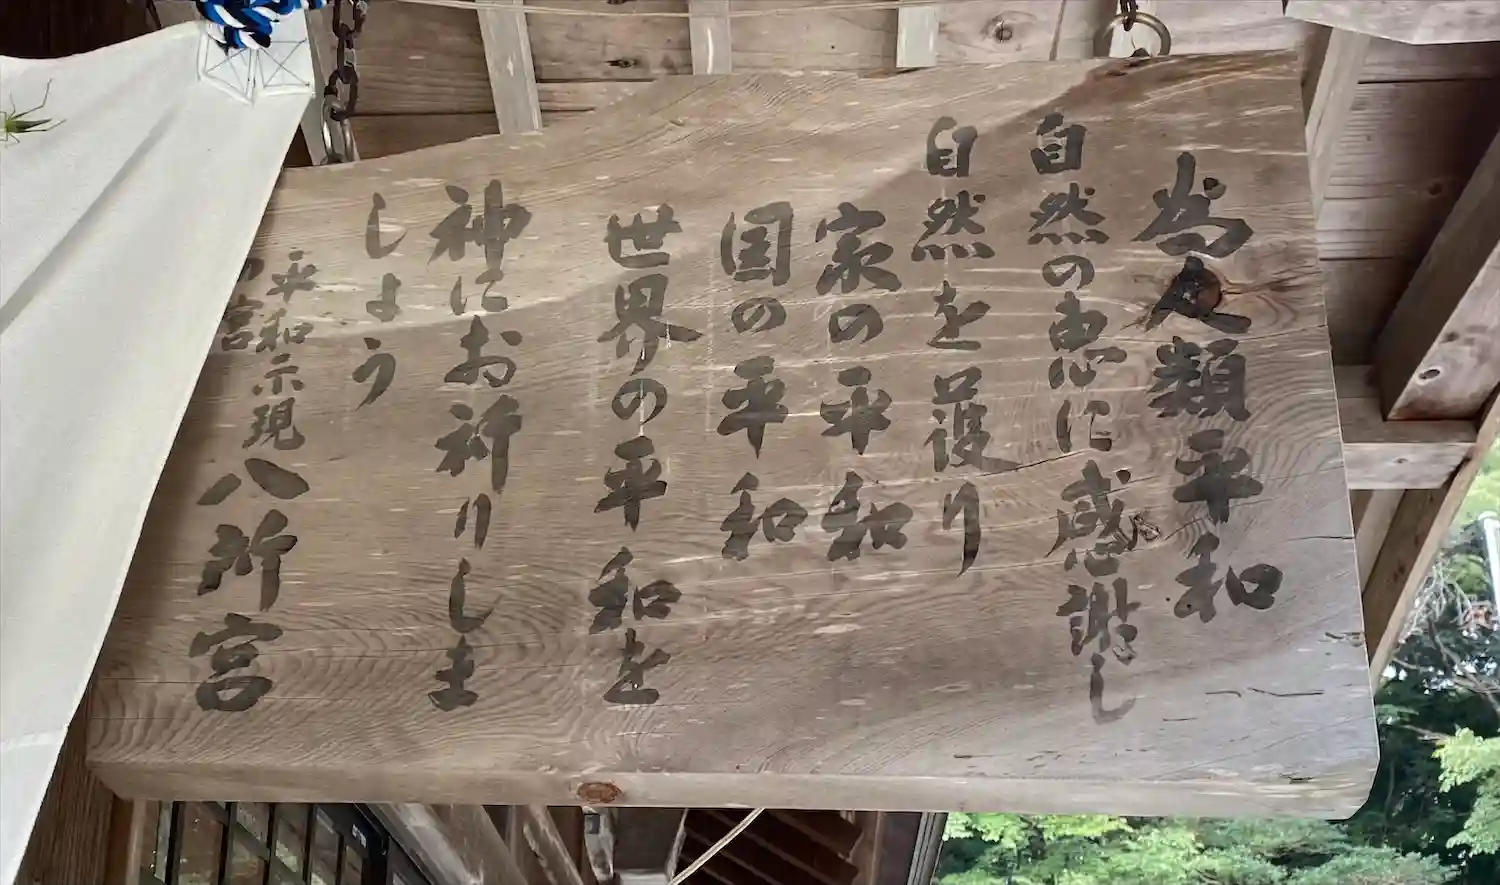 為人類平和
自然の恵に感謝し
自然を護り
家の平和
国の平和
世界の平和を
神にお祈りしま
しょう
平和示現
宮
八所宮